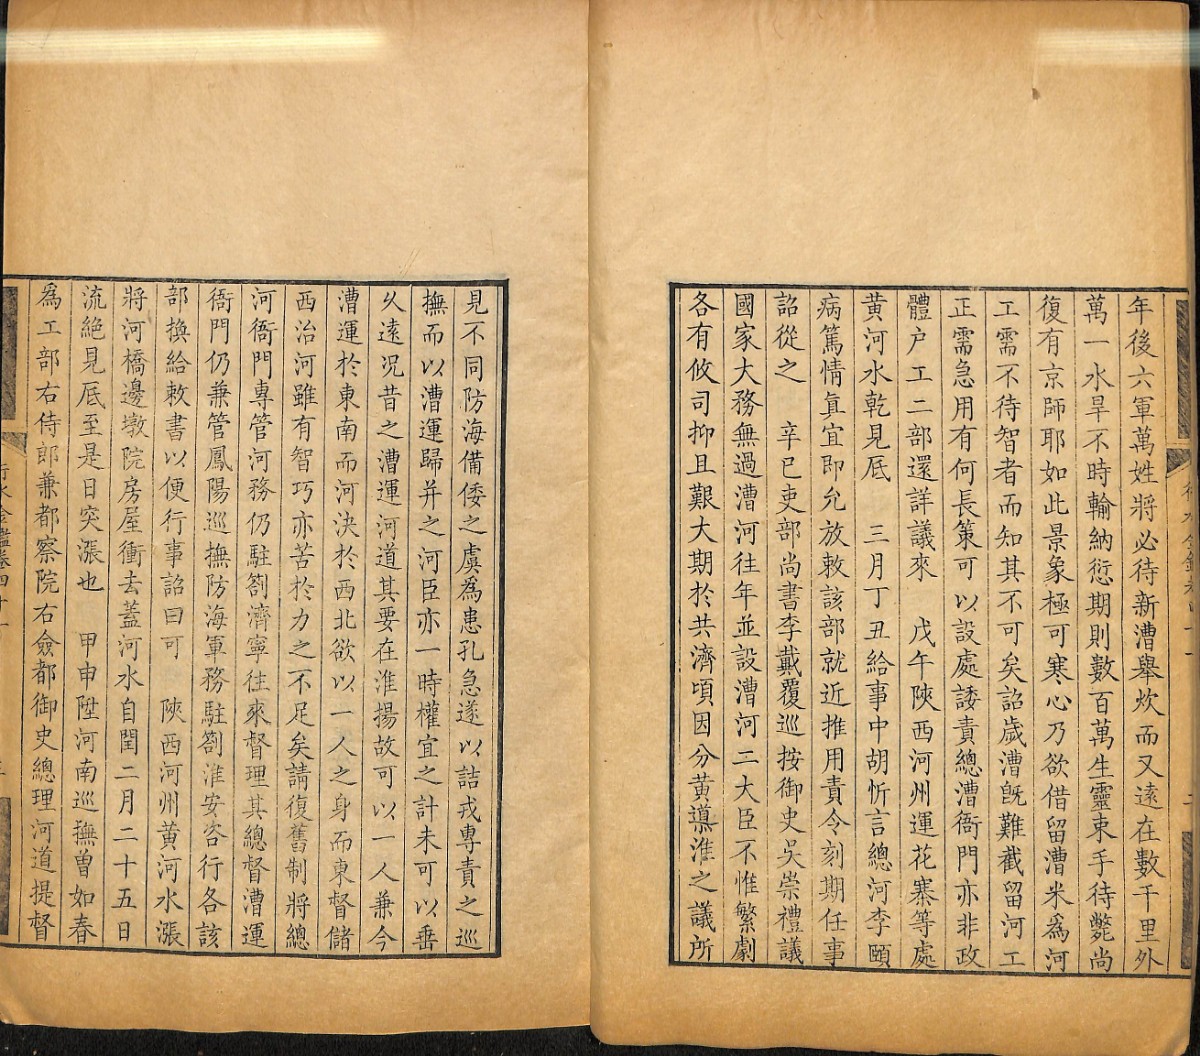 年後六軍萬姓將必待新漕舉炊而又遠在數千里外
萬一水旱不時輸納愆期則數百萬生靈束手待斃尚
復有京師耶如此景象極可寒心乃欲借留漕米為河
工需不待智者而知其不可矣詔歲漕旣難截留河工
正需急用有何長策可以設處諉責總漕衙門亦非政
體户工二部還詳議來　戊午陝西河州運花寨等處
黃河水乾見厎　三月丁丑給事中胡忻言總河李頤
病篤情眞宜即允放敕該部就近推用責令刻期任事
詔從之　辛巳吏部尚書李戴覆巡按御史吳崇禮議
國家大務無過漕河往年並設漕河三大臣不惟繁劇
各有攸司抑且艱大期於共濟頃因分黃導淮之議所
見不同防海備倭之虞為患孔急遂以詰戎專責之巡
撫而以漕運歸并之河臣亦一時權宜之計未可以垂
久遠況昔之漕運河道其要在淮揚故可以一人兼今
漕運於東南而河決於西北欲以一人之身而東督儲
西治河雖有智巧亦苦於力之不足矣請復舊制將總
河衙門專管河務仍駐劄濟寧往來督理其總督漕運
衙門仍兼管鳳陽巡撫防海軍務駐劄淮安咨行各該
部換給敕書以便行事詔曰可　陝西河州黃河水漲
將河橋邊墩院房屋衝去蓋河水自閏二月二十五日
流絶見厎至是日突漲也　甲申陞河南巡撫曾如春
為工部右侍郎兼都察院右僉都御史總理河道提督
行水金鑑卷四十一